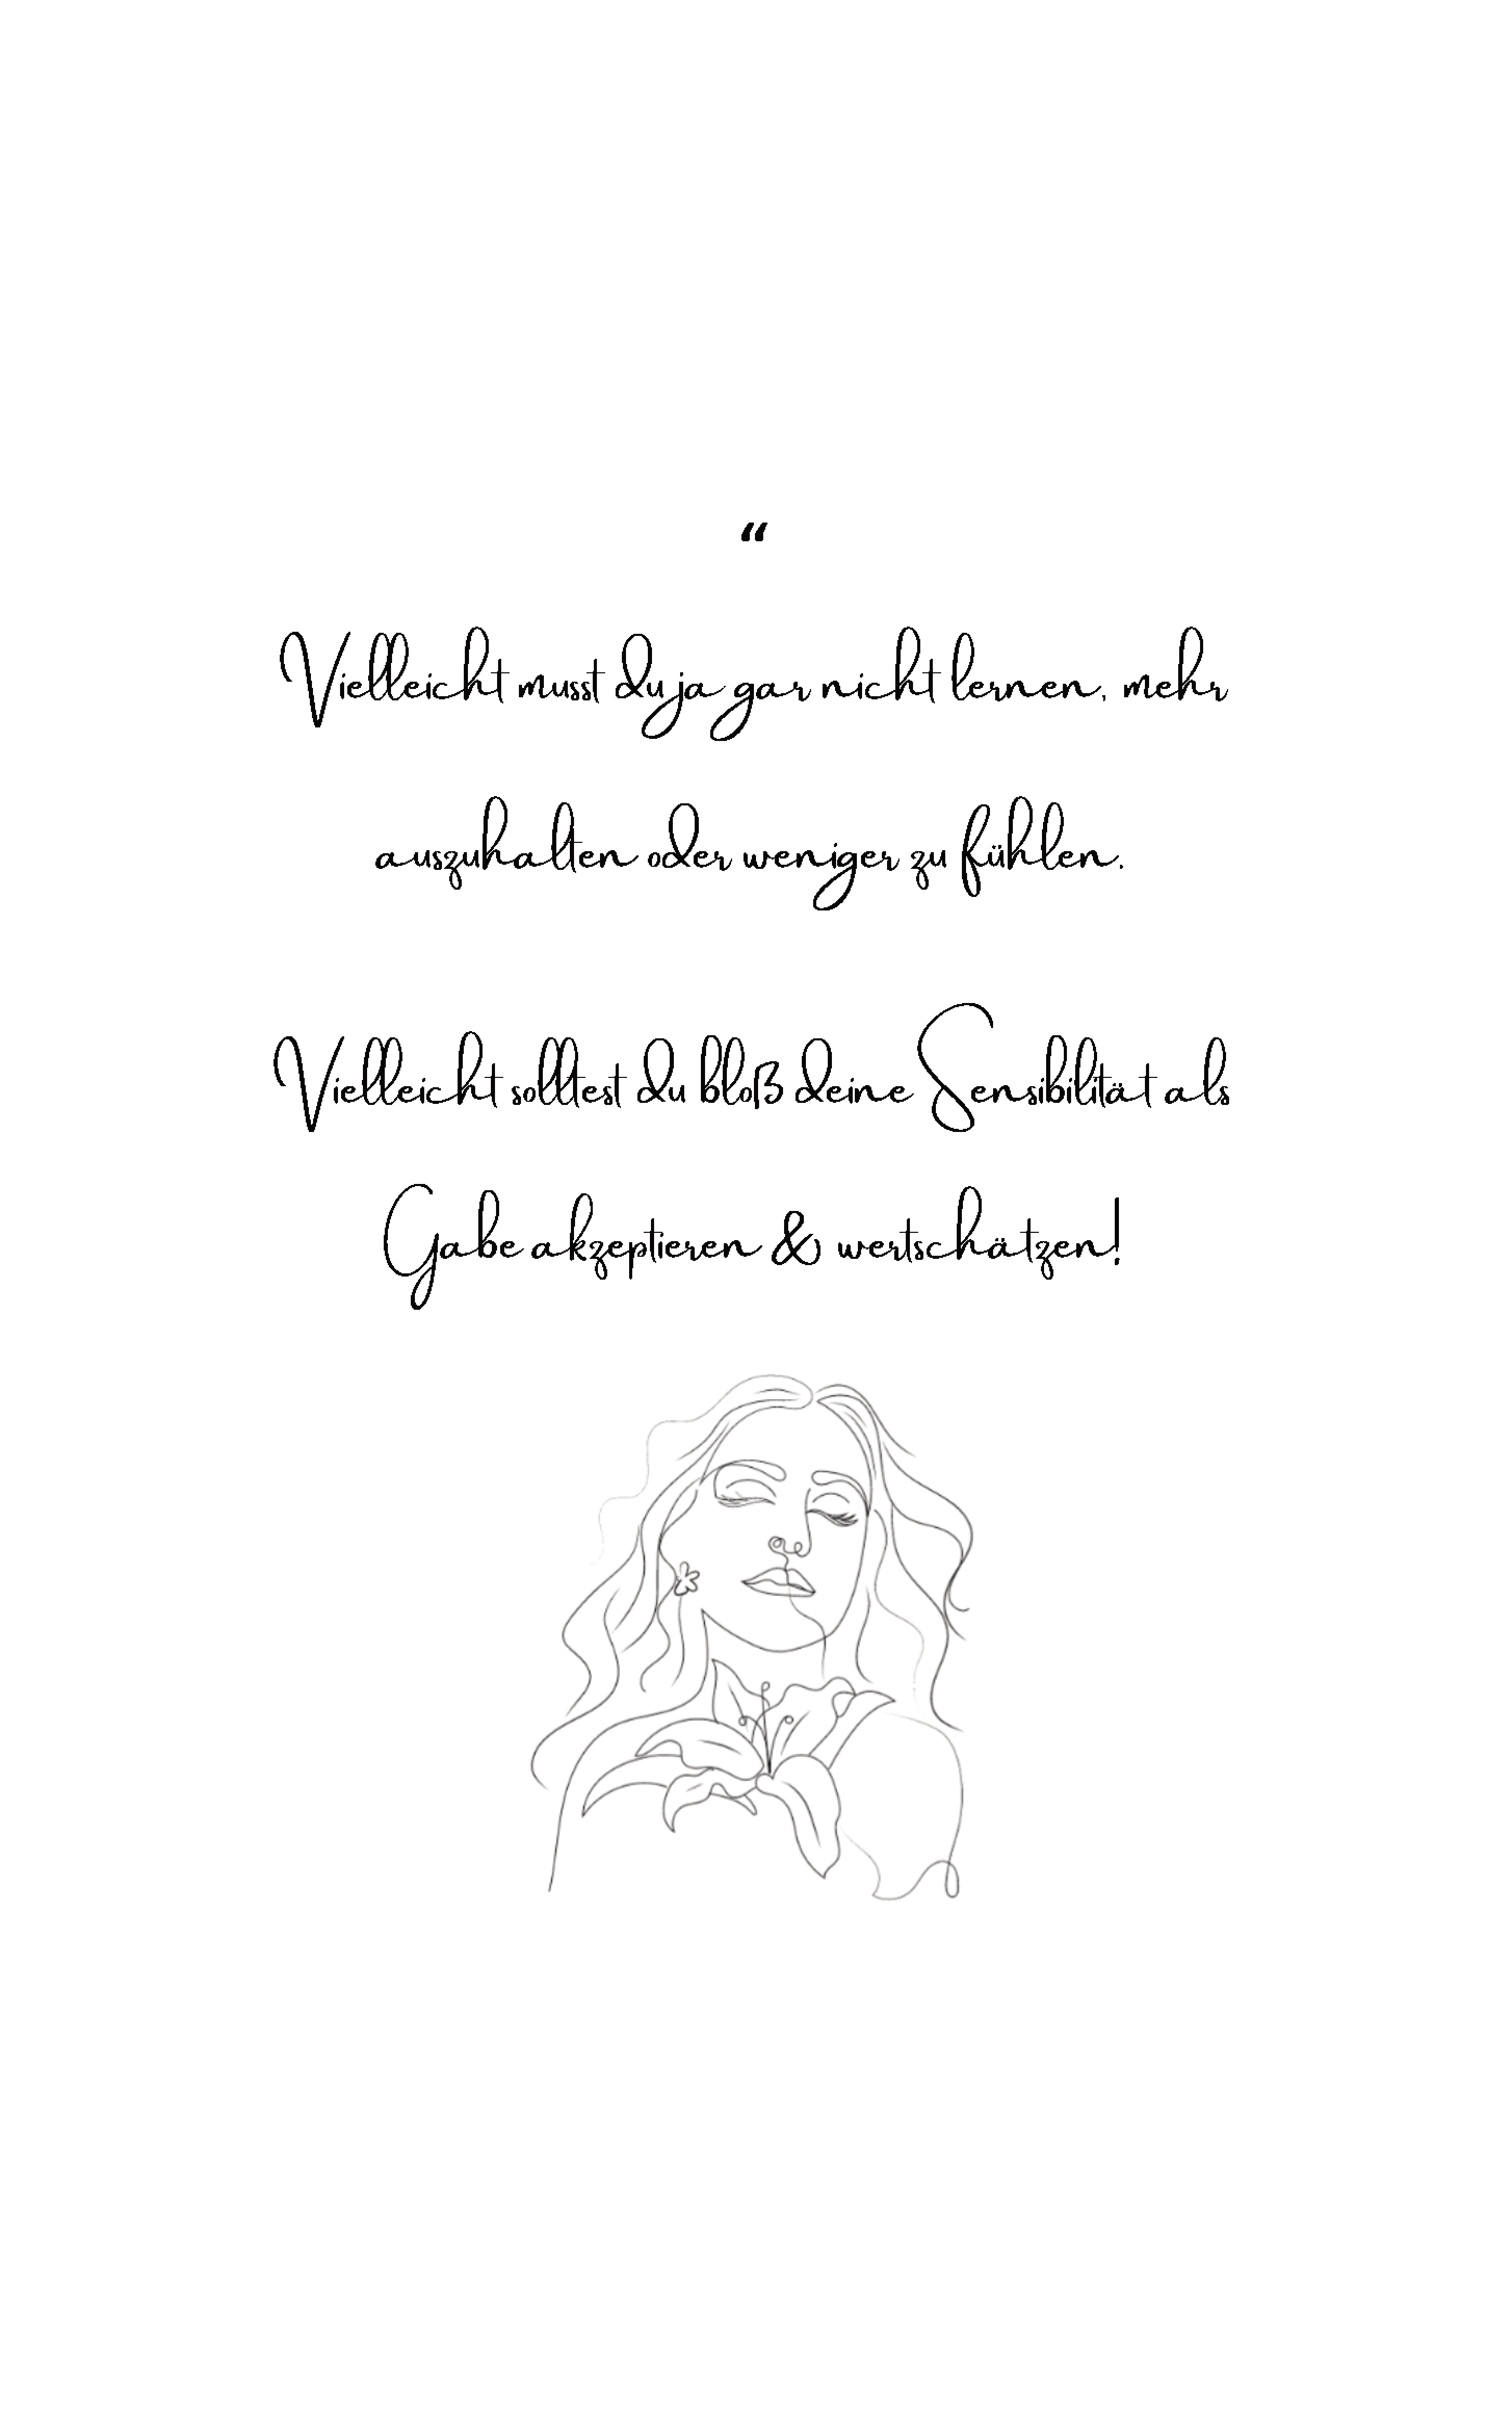 “
Vielleicht musst du ja gar nicht lernen, mehr
auszuhalten oder weniger zu fühlen.
Vielleicht solltest du bloß deine Sensibilität als
Gabe akzeptieren & wertschätzen!